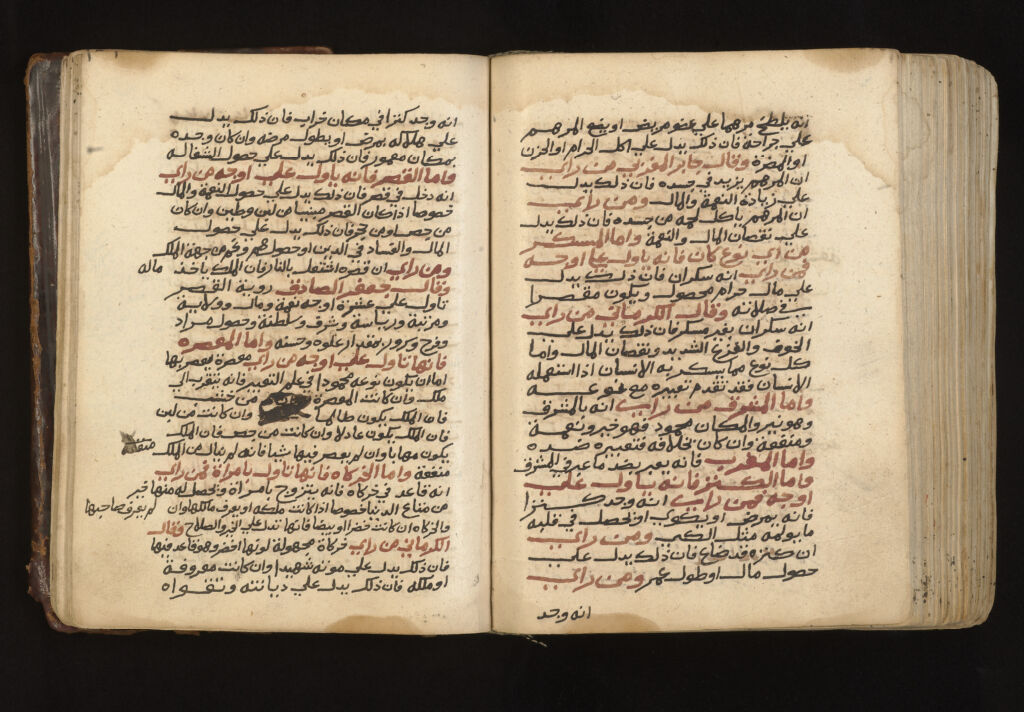 انه يلطخ مرهما علي عضو مريض او يضع المرهم
علي جراحة فان ذلك يدل علي اكل الحرام او الحزن
او المضرة وقال جابر المغربي من راي
ان المرهم يزيد في جسده فان ذلك يدل
علي زيادة النعمة والمال ومن راي
ان المرهم ياكل لحمه من جسده فان ذلك يدل
علي نقصان المال والنعمة واما المسكر
من اي نوع كان فانه ياول علي اوجه
فمن راي انه سكران فان ذلك يدل
علي مال حرام محصول ويكون مقصرا
في صلاته وقال الكرماني من راي
انه سكران بغير مسكر فان ذلك يدل علي
الخوف والفزع الشديد ونقصان المال واما
كل نوع مما يسكر به الانسان اذا استعمله
الانسان فقد تقدم تعبيره مع نوعه
واما المشرق من راي انه بالمشرق
وهو نير والمكان محمود فهو خير ونعمة
ومنفعة وان كان بخلافه فتعبيره ضده
واما المغرب فانه يعبر بضد ما عبر في المشرق
واما الكنز فانه ياول علي
اوجه فمن راي انه وجد كنزا
فانه يمرض او يكوي او يحصل في قلبه
ما يولمه مثل الكي ومن راي
ان كنزه قد ضاع فان ذلك يدل علي
حصول مال او طول عمر ومن راي
انه وجد
انه وجد كنزا في مكان خراب فان ذلك يدل
علي هلاكه بمرض او بطول مرضه وان كان وجده
بمكان معمور فان ذلك يدل علي حصول الشفا له
واما القصر فانه ياول علي اوجه من راي
انه دخل في قصر فان ذلك يدل علي حصول النعمة والمال
خصوصا اذا كان القصر مبنيا من لبن وطين وان كان
من جص او من حجر فان ذلك يدل علي حصول
المال والفساد في الدين او حصول هم وغم من جهة الملك
ومن راي ان قصره اشتعل بالنار فان الملك ياخذ ماله
وقال جعفر الصادق روية القصر
تاول علي عشرة اوجه نعمة ومال وولاية
ومرتبة ورياسة وشرف وسلطنة وحصول مراد
وفرح وسرور بمقدار علوه وحسنه واما المعصرة
فانها تاول علي اوجه من راي معصرة يعصر بها
اما ان يكون نوعه محمودا في علم التعبير فانه يتقرب الي
ملك وان كانت المعصرة من خشب
فان الملك يكون ظالما وان كانت من لبن
فان الملك يكون عادلا وان كانت من جص فان الملك
يكون مهابا وان لم يعصر فيها شيا فانه لم ينال من الملك منفعة
منفعة واما الخركاه فانها تاول بامراة فمن راي
انه قاعد في خركاه فانه يتزوج بامراة وتحصل له منها خير
من متاع الدنيا خصوصا اذا كانت ملكه او يعرف مالكها وان لم يعرف صاحبها
والخركاه ان كانت خضرا او بيضا فانها تدل علي الخير والصلاح وقال
الكرماني من راي خركاة مجهولة لونها اخضر وهو قاعد فيها
فان ذلك يدل علي موته شهيدا وان كانت معروفة
او ملكه فان ذلك يدل علي ديانته وتقواه